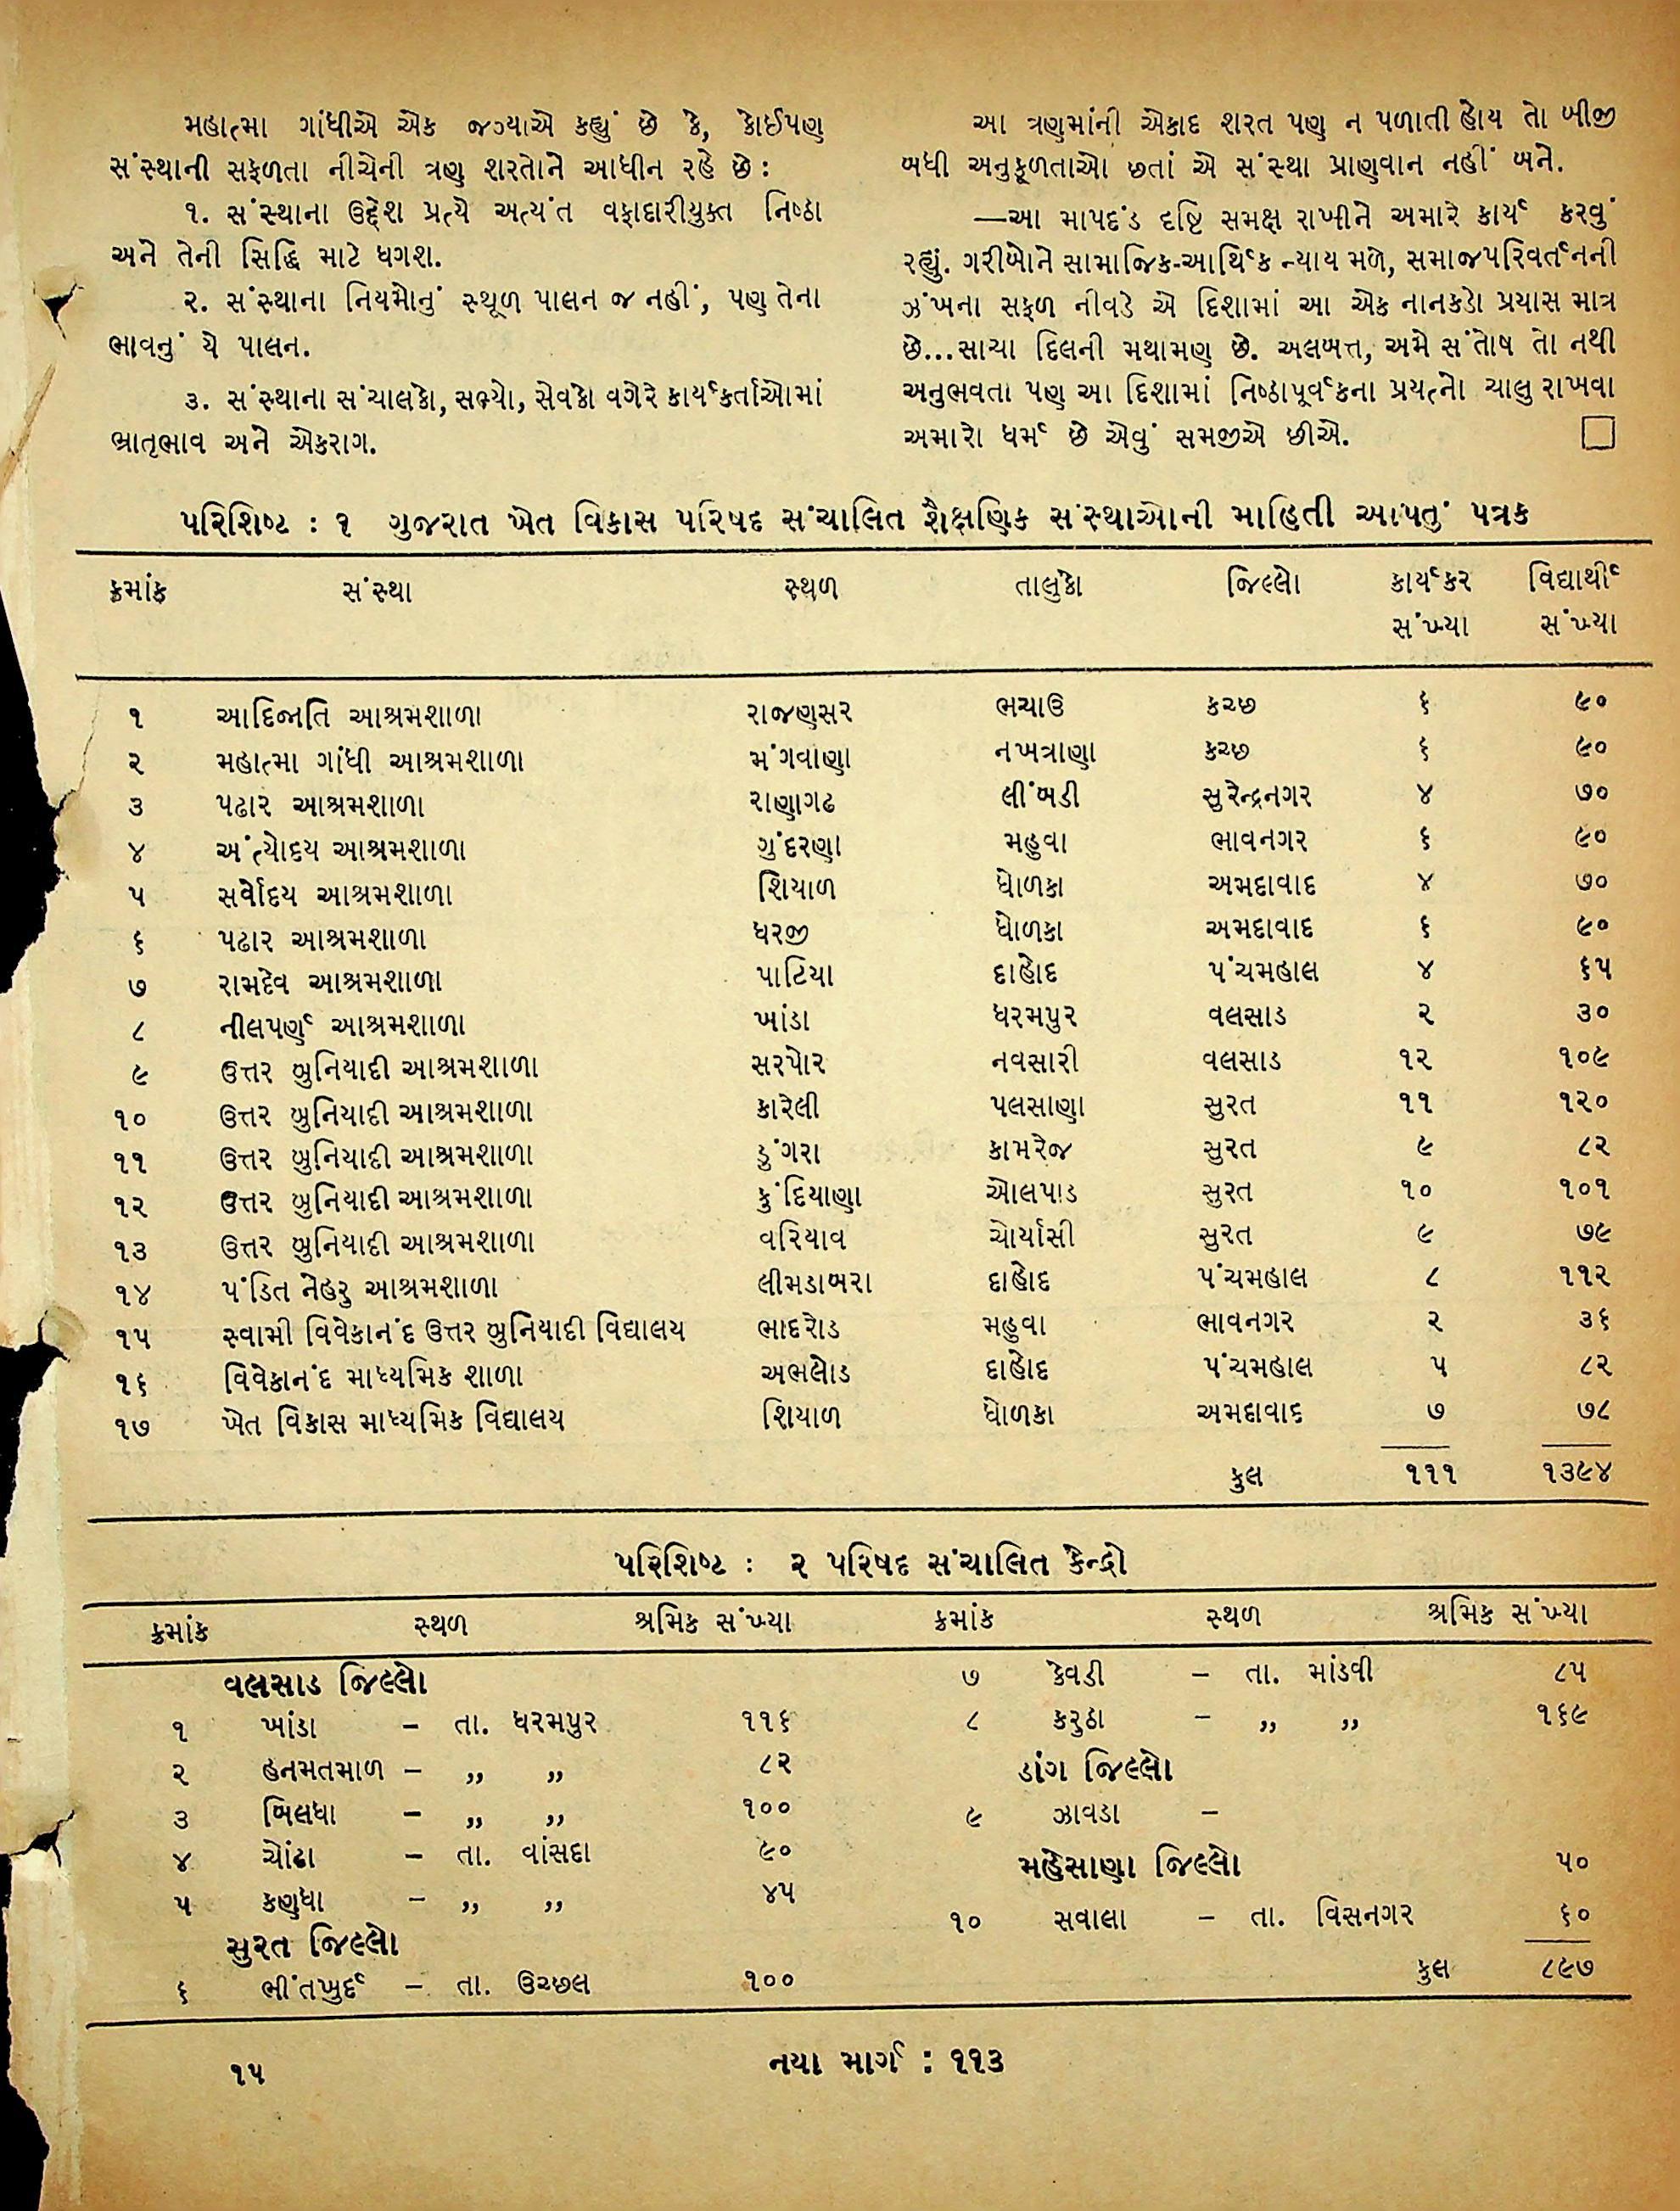 મહાત્મા ગાંધીએ એક જગ્યાએ કહ્યું છે કે, કોઈપણ
સંસ્થાની સફળતા નીચેની ત્રણ શરતોને આધીન રહે છે:
૧. સંસ્થાના ઉદ્દેશ પ્રત્યે અત્યંત વફાદારીયુક્ત નિષ્ઠા
અને તેની સિદ્ધિ માટે ધગશ.
૨. સંસ્થાના નિયમોનું સ્થૂળ પાલન જ નહીં, પણ તેના
ભાવનું યે પાલન.
૩. સંસ્થાના સંચાલકો, સભ્યો, સેવકો વગેરે કાર્યકર્તાઓમાં
ભ્રાતૃભાવ અને એકરાગ.
આ ત્રણમાંની એકાદ શરત પણ ન પળાતી હોય તો બીજી
બધી અનુકૂળતાઓ છતાં એ સંસ્થા પ્રાણવાન નહીં બને.
—આ માપદંડ દૃષ્ટિ સમક્ષ રાખીને અમારે કાર્ય કરવું
રહ્યું. ગરીબોને સામાજિક-આર્થિક ન્યાય મળે, સમાજપરિવર્તનની
ઝંખના સફળ નીવડે એ દિશામાં આ એક નાનકડો પ્રયાસ માત્ર
છે...સાચા દિલની મથામણ છે. અલબત્ત, અમે સંતોષ તો નથી
અનુભવતા પણ આ દિશામાં નિષ્ઠાપૂર્વકના પ્રયત્નો ચાલુ રાખવા
અમારો ધર્મ છે એવું સમજીએ છીએ.
પરિશિષ્ટ : ૧ ગુજરાત ખેત વિકાસ પરિષદ સંચાલિત શૈક્ષણિક સંસ્થાઓની માહિતી આપતું પત્રક
ક્રમાંક સંસ્થા સ્થળ તાલુકો જિલ્લો કાર્યકર વિદ્યાર્થી
સંખ્યા સંખ્યા
૧ આદિજાતિ આશ્રમશાળા રાજણસર ભચાઉ કચ્છ ૬ ૯૦
૨ મહાત્મા ગાંધી આશ્રમશાળા મંગવાણા નખત્રાણા કચ્છ ૬ ૯૦
૩ પઢાર આશ્રમશાળા રાણાગઢ લીંબડી સુરેન્દ્રનગર ૪ ૭૦
૪ અંત્યોદય આશ્રમશાળા ગુંદરણા મહુવા ભાવનગર ૬ ૯૦
૫ સર્વોદય આશ્રમશાળા શિયાળ ધોળકા અમદાવાદ ૪ ૭૦
૬ પઢાર આશ્રમશાળા ધરજી ધોળકા અમદાવાદ ૬ ૯૦
૭ રામદેવ આશ્રમશાળા પાટિયા દાહોદ પંચમહાલ ૪ ૬૫
૮ નીલપર્ણ આશ્રમશાળા ખાંડા ધરમપુર વલસાડ ૨ ૩૦
૯ ઉત્તર બુનિયાદી આશ્રમશાળા સરપોર નવસારી વલસાડ ૧૨ ૧૦૯
૧૦ ઉત્તર બુનિયાદી આશ્રમશાળા કારેલી પલસાણા સુરત ૧૧ ૧૨૦
૧૧ ઉત્તર બુનિયાદી આશ્રમશાળા ડુંગરા કામરેજ સુરત ૯ ૮૨
૧૨ ઉત્તર બુનિયાદી આશ્રમશાળા કુંદિયાણા ઓલપાડ સુરત ૧૦ ૧૦૧
૧૩ ઉત્તર બુનિયાદી આશ્રમશાળા વરિયાવ ચોર્યાસી સુરત ૯ ૭૯
૧૪ પંડિત નેહરુ આશ્રમશાળા લીમડાબરા દાહોદ પંચમહાલ ૮ ૧૧૨
૧૫ સ્વામી વિવેકાનંદ ઉત્તર બુનિયાદી વિદ્યાલય ભાદરોડ મહુવા ભાવનગર ૨ ૩૬
૧૬ વિવેકાનંદ માધ્યમિક શાળા અભલોડ દાહોદ પંચમહાલ ૫ ૮૨
૧૭ ખેત વિકાસ માધ્યમિક વિદ્યાલય શિયાળ ધોળકા અમદાવાદ ૭ ૭૮
કુલ ૧૧૧ ૧૩૯૪
પરિશિષ્ટ : ૨ પરિષદ સંચાલિત કેન્દ્રો
ક્રમાંક સ્થળ શ્રમિક સંખ્યા ક્રમાંક સ્થળ શ્રમિક સંખ્યા
વલસાડ જિલ્લો
૧ ખાંડા – તા. ધરમપુર ૧૧૬
૨ હનમતમાળ – ,, ,, ૮૨
૩ બિલધા – ,, ,, ૧૦૦
૪ ચોંઢા – તા. વાંસદા ૯૦
૫ કણધા – ,, ,, ૪૫
સુરત જિલ્લો
૬ ભીંતખુર્દ – તા. ઉચ્છલ ૧૦૦
૭ કેવડી – તા. માંડવી ૮૫
૮ કરુઠા – ,, ,, ૧૬૯
ડાંગ જિલ્લો
૯ ઝાવડા –
મહેસાણા જિલ્લો ૫૦
૧૦ સવાલા – તા. વિસનગર ૬૦
કુલ ૮૯૭
૧૫ નયા માર્ગ : ૧૧૩